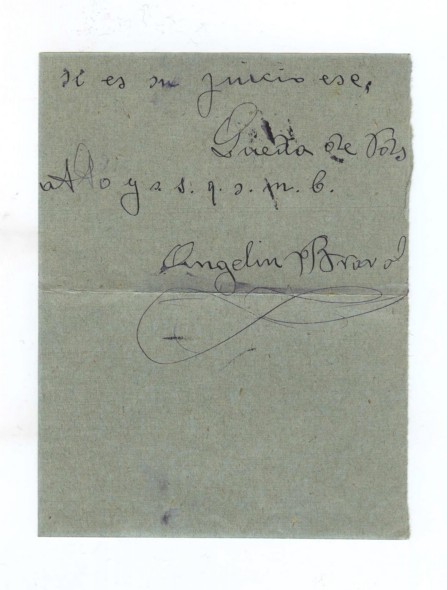 si es su juicio ese,
Queda de Vds
atto y s s. q. s. m. b.
Angelin Bravo